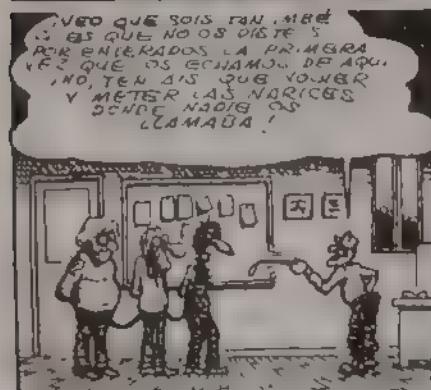 ¡VEO QUE SOIS TAN IMBÉ
CILES QUE NO OS DISTEIS
POR ENTERADOS LA PRIMERA
VEZ QUE OS ECHAMOS DE AQUI,
¡NO, TENIAIS QUE VOLVER
Y METER LAS NARICES
DONDE NADIE OS
LLAMABA!